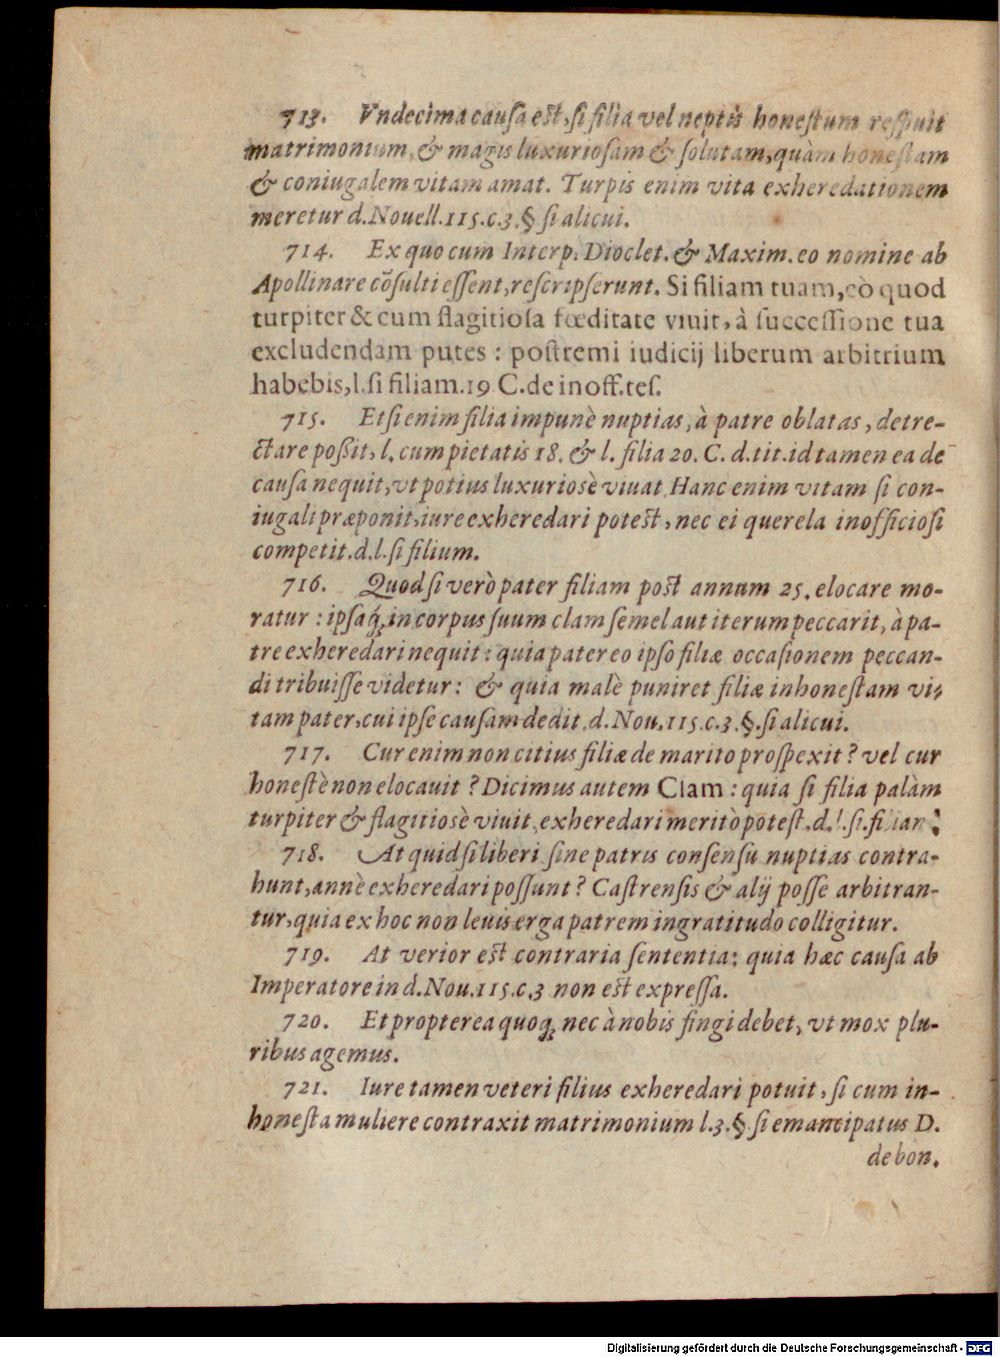 713. Vndecima causa est, si filia vel neptis honestum respuit
matrimonium, & magis luxuriosam & solutam, quàm honestam
& coniugalem vitam amat. Turpis enim vita exheredationem
meretur d. Nouell. 115. c. 3. § si alicui.
714. Ex quo cum Interp. Dioclet. & Maxim. eo nomine ab
Apollinare cõsulti essent, rescripserunt. Si filiam tuam, eò quod
turpiter & cum flagitiosa fœditate viuit, à successione tua
excludendam putes : postremi iudicij liberum arbitrium
habebis, l. si filiam. 19 C. de inoff. tes.
715. Etsi enim filia impunè nuptias, à patre oblatas, detre-
ctare possit, l. cum pietatis 18. & l. filia 20. C. d. tit. id tamen ea de
causa nequit, vt potius luxuriosè viuat. Hanc enim vitam si con-
iugali præponit, iure exheredari potest, nec ei querela inofficiosi
competit. d. l. si filium.
716. Quod si verò pater filiam post annum 25. elocare mo-
ratur : ipsaq́; in corpus suum clam semel aut iterum peccarit, à pa-
tre exheredari nequit : quia pater eo ipso filiæ occasionem peccan-
di tribuisse videtur : & quia malè puniret filiæ inhonestam vi-
tam pater, cui ipse causam dedit. d. Nou. 115. c. 3. §. si alicui.
717. Cur enim non citius filiæ de marito prospexit ? vel cur
honestè non elocauit ? Dicimus autem Clam : quia si filia palàm
turpiter & flagitiosè viuit, exheredari meritò potest. d. l. si. filiam.
718. At quid si liberi sine patris consensu nuptias contra-
hunt, annè exheredari possunt ? Castrensis & alij posse arbitran-
tur, quia ex hoc non leuis erga patrem ingratitudo colligitur.
719. At verior est contraria sententia : quia hæc causa ab
Imperatore in d. Nou. 115. c. 3 non est expressa.
720. Et propterea quoq; nec à nobis fingi debet, vt mox plu-
ribus agemus.
721. Iure tamen veteri filius exheredari potuit, si cum in-
honesta muliere contraxit matrimonium l. 3. §. si emancipatus D.
de bon.
Digitalisierung gefördert durch die Deutsche Forschungsgemeinschaft - DFG